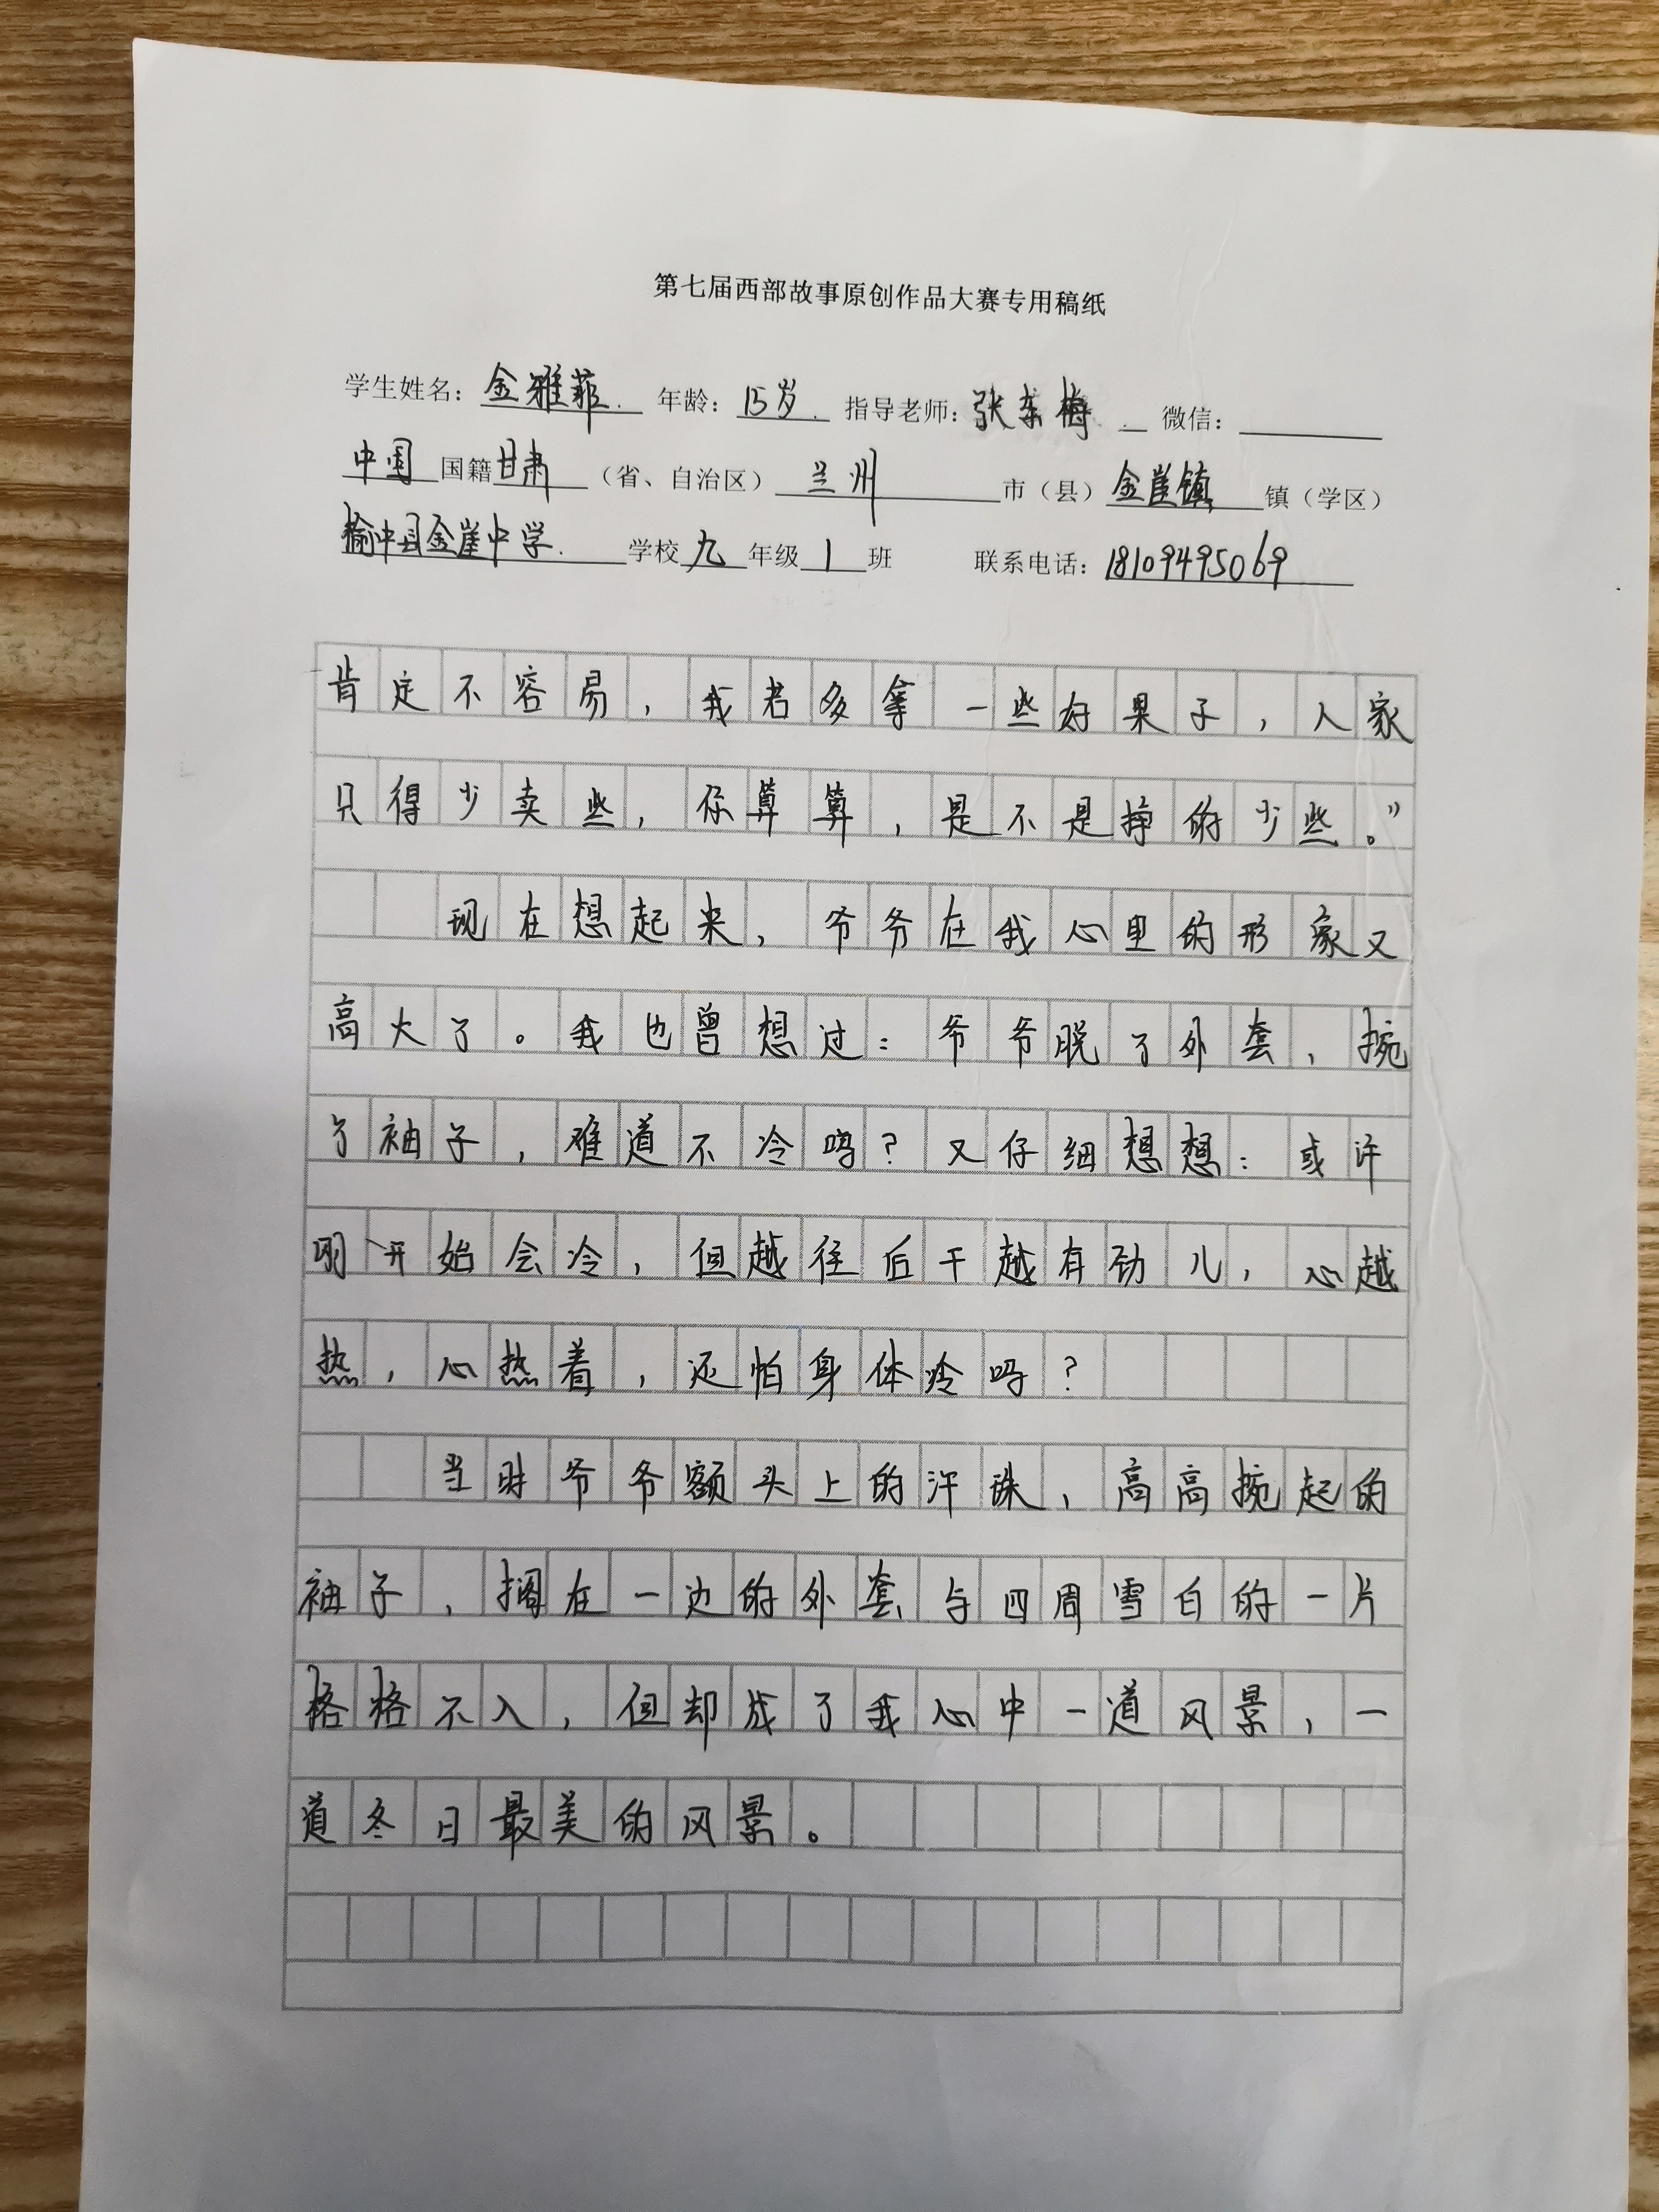 第七届西部故事原创作品大赛专用稿纸
学生姓名：金雅菲. 年龄：15岁. 指导老师：张东梅. 微信：
中国国籍甘肃（省、自治区）兰州市（县）金崖镇镇（学区）
榆中县金崖中学.学校九年级1班 联系电话：18109495069
肯定不容易，我若多拿一些好果子，人家
只得少卖些，你算算，是不是挣的少些。”
现在想起来，爷爷在我心里的形象又
高大了。我也曾想过：爷爷脱了外套，挽
了袖子，难道不冷吗？又仔细想想：或许
刚开始会冷，但越往后干越有劲儿，心越
热，心热着，还怕身体冷吗？
当时爷爷额头上的汗珠，高高挽起的
袖子，搁在一边的外套与四周雪白的一片
格格不入，但却成了我心中一道风景，一
道冬日最美的风景。